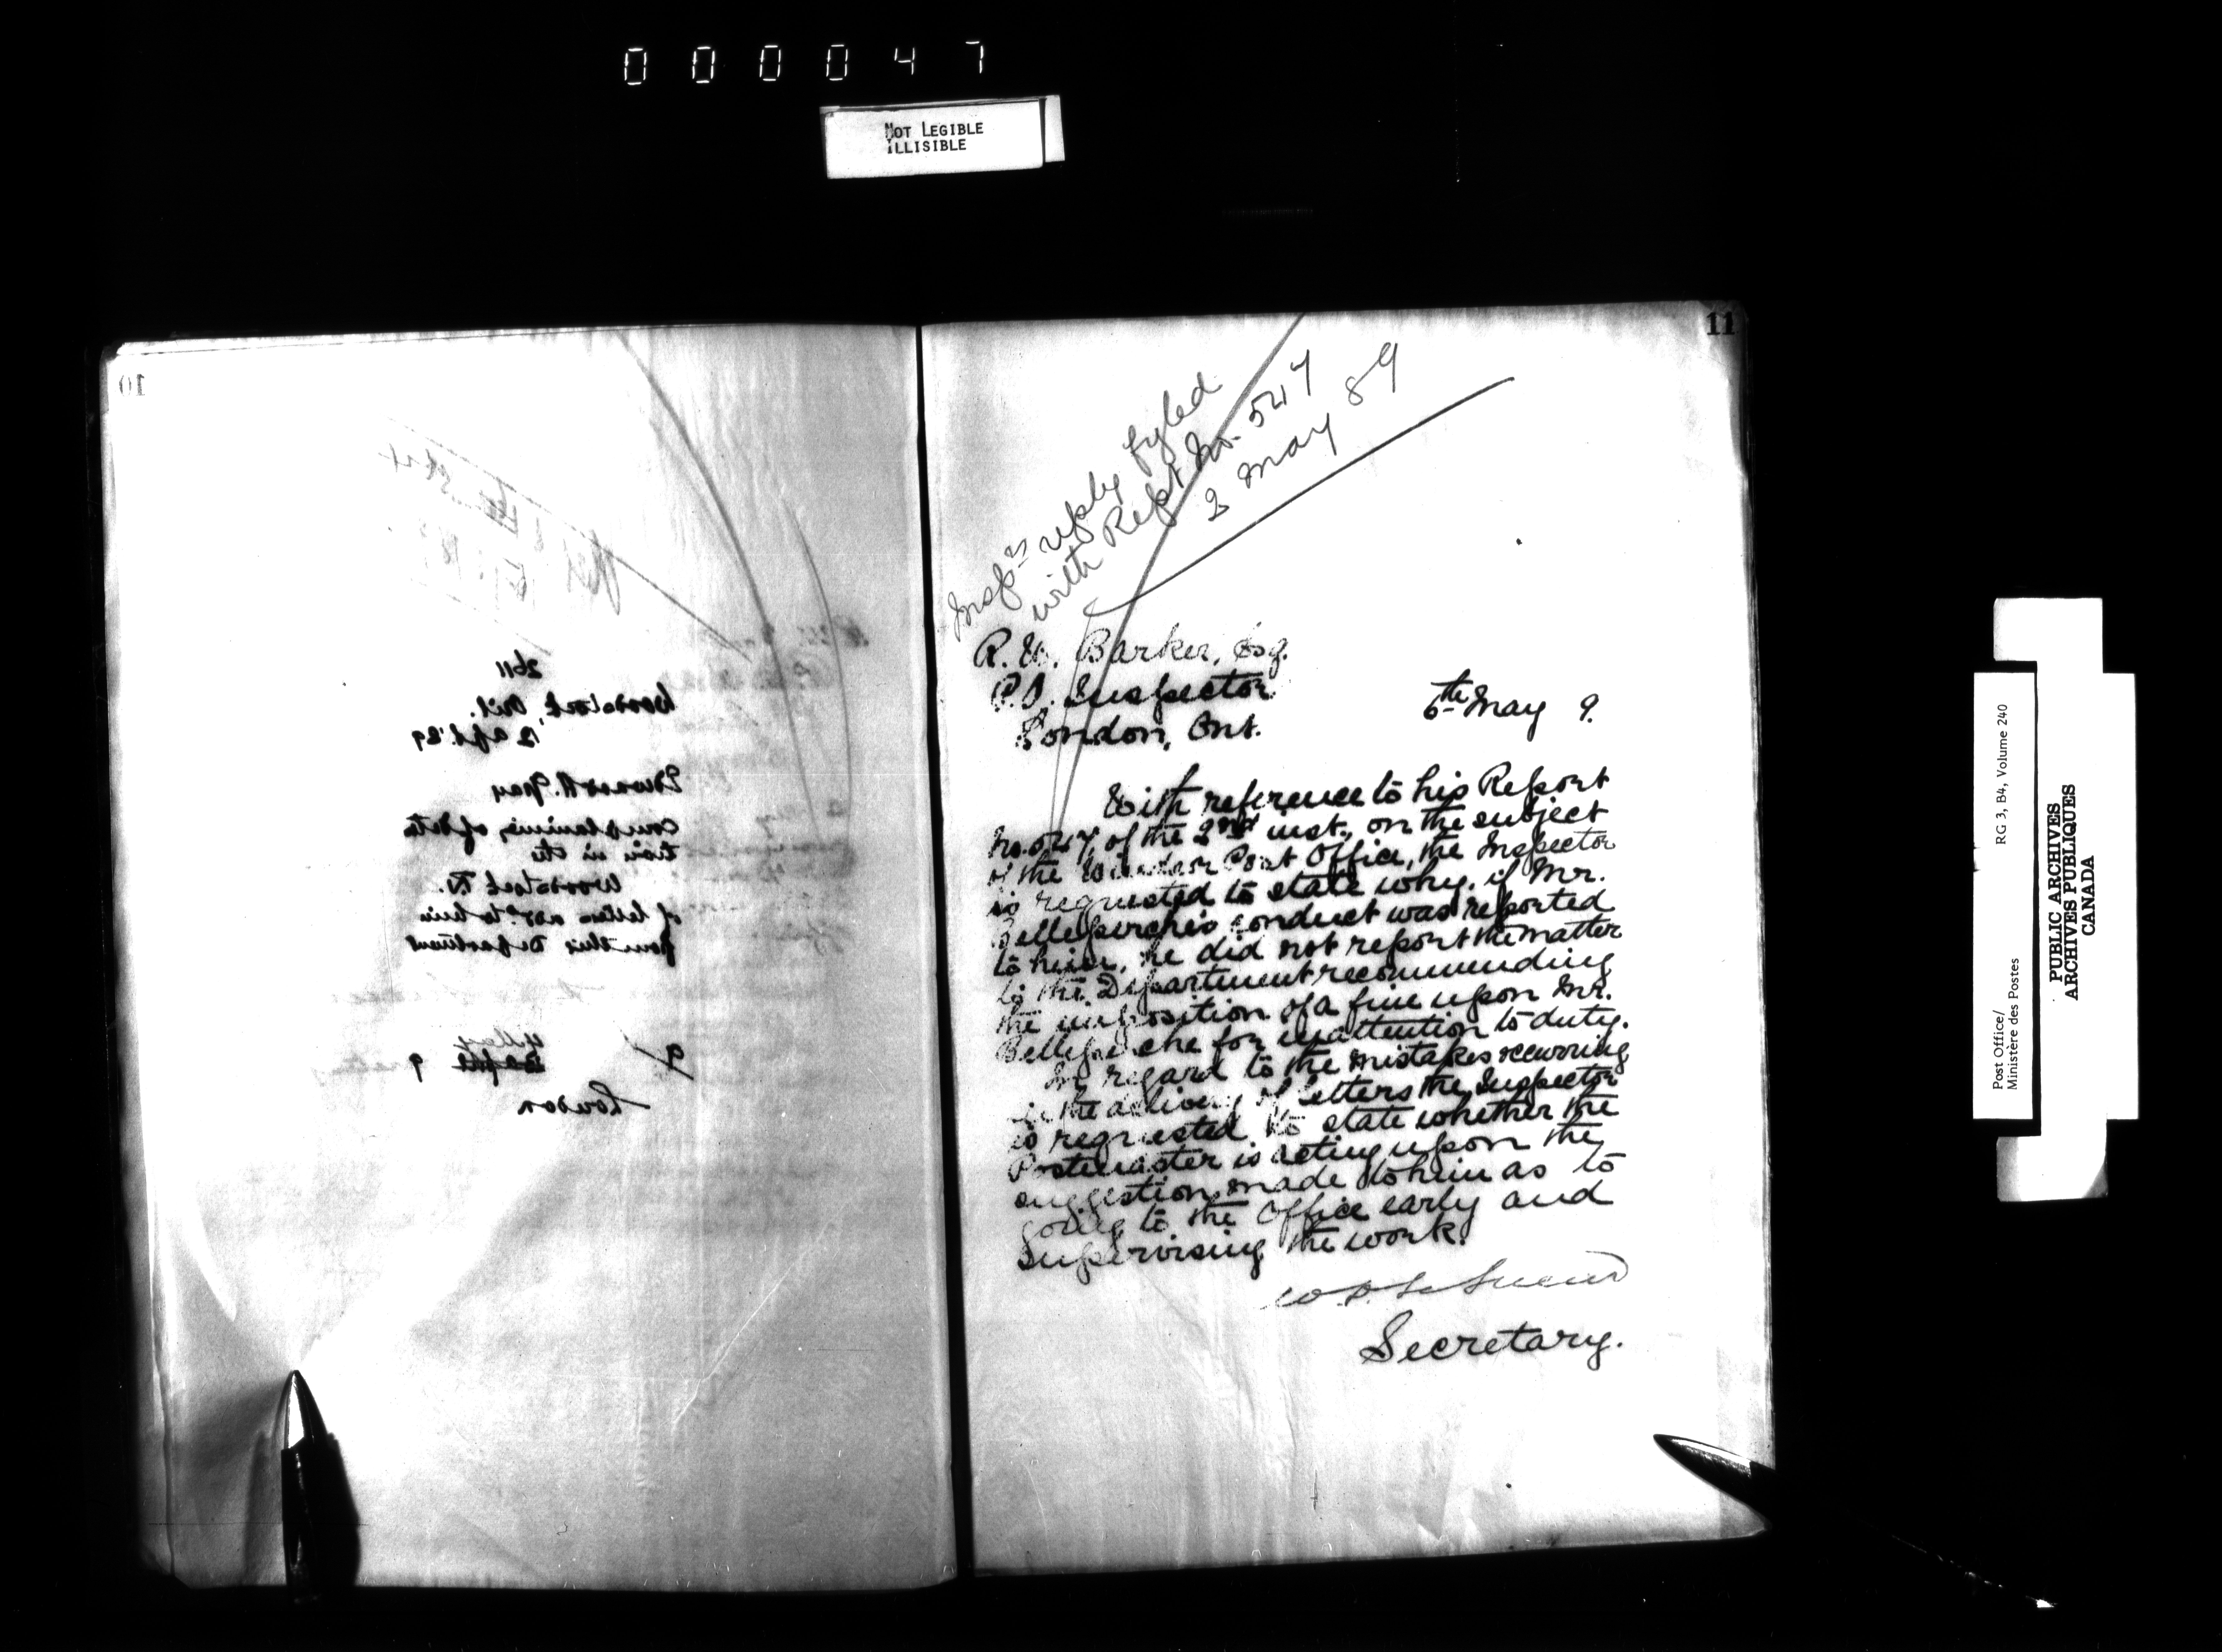 000047
NOT LEGIBLE
ILLISIBLE
10
2611
Woodstock, Ont.
12 Apl. '89
Edward H. Gray
complaining of deten
tion in the
Woodstock P.O.
of letters add.d to him
from this Department
4 May
9
London
11
Insp.rs reply fyled
with Rept No. 547
2 May 89
R. W. Barker, Esq.
P.O. Inspector
London, Ont.
6th May 9.
With reference to his Report
No. 547, of the 2nd inst., on the subject
of the Windsor Post Office, the Inspector
is requested to state why, if Mr.
Belleperche's conduct was reported
to him, he did not report the matter
to the Department recommending
the imposition of a fine upon Mr.
Belleperche for inattention to duty.
In regard to the mistakes occurring
in the delivery of letters the Inspector
is requested to state whether the
Postmaster is acting upon the
suggestion made to him as to
going to the Office early and
supervising the work.
W. D. LeSueur
Secretary.
Post Office/
Ministère des Postes
RG 3, B4, Volume 240
PUBLIC ARCHIVES
ARCHIVES PUBLIQUES
CANADA